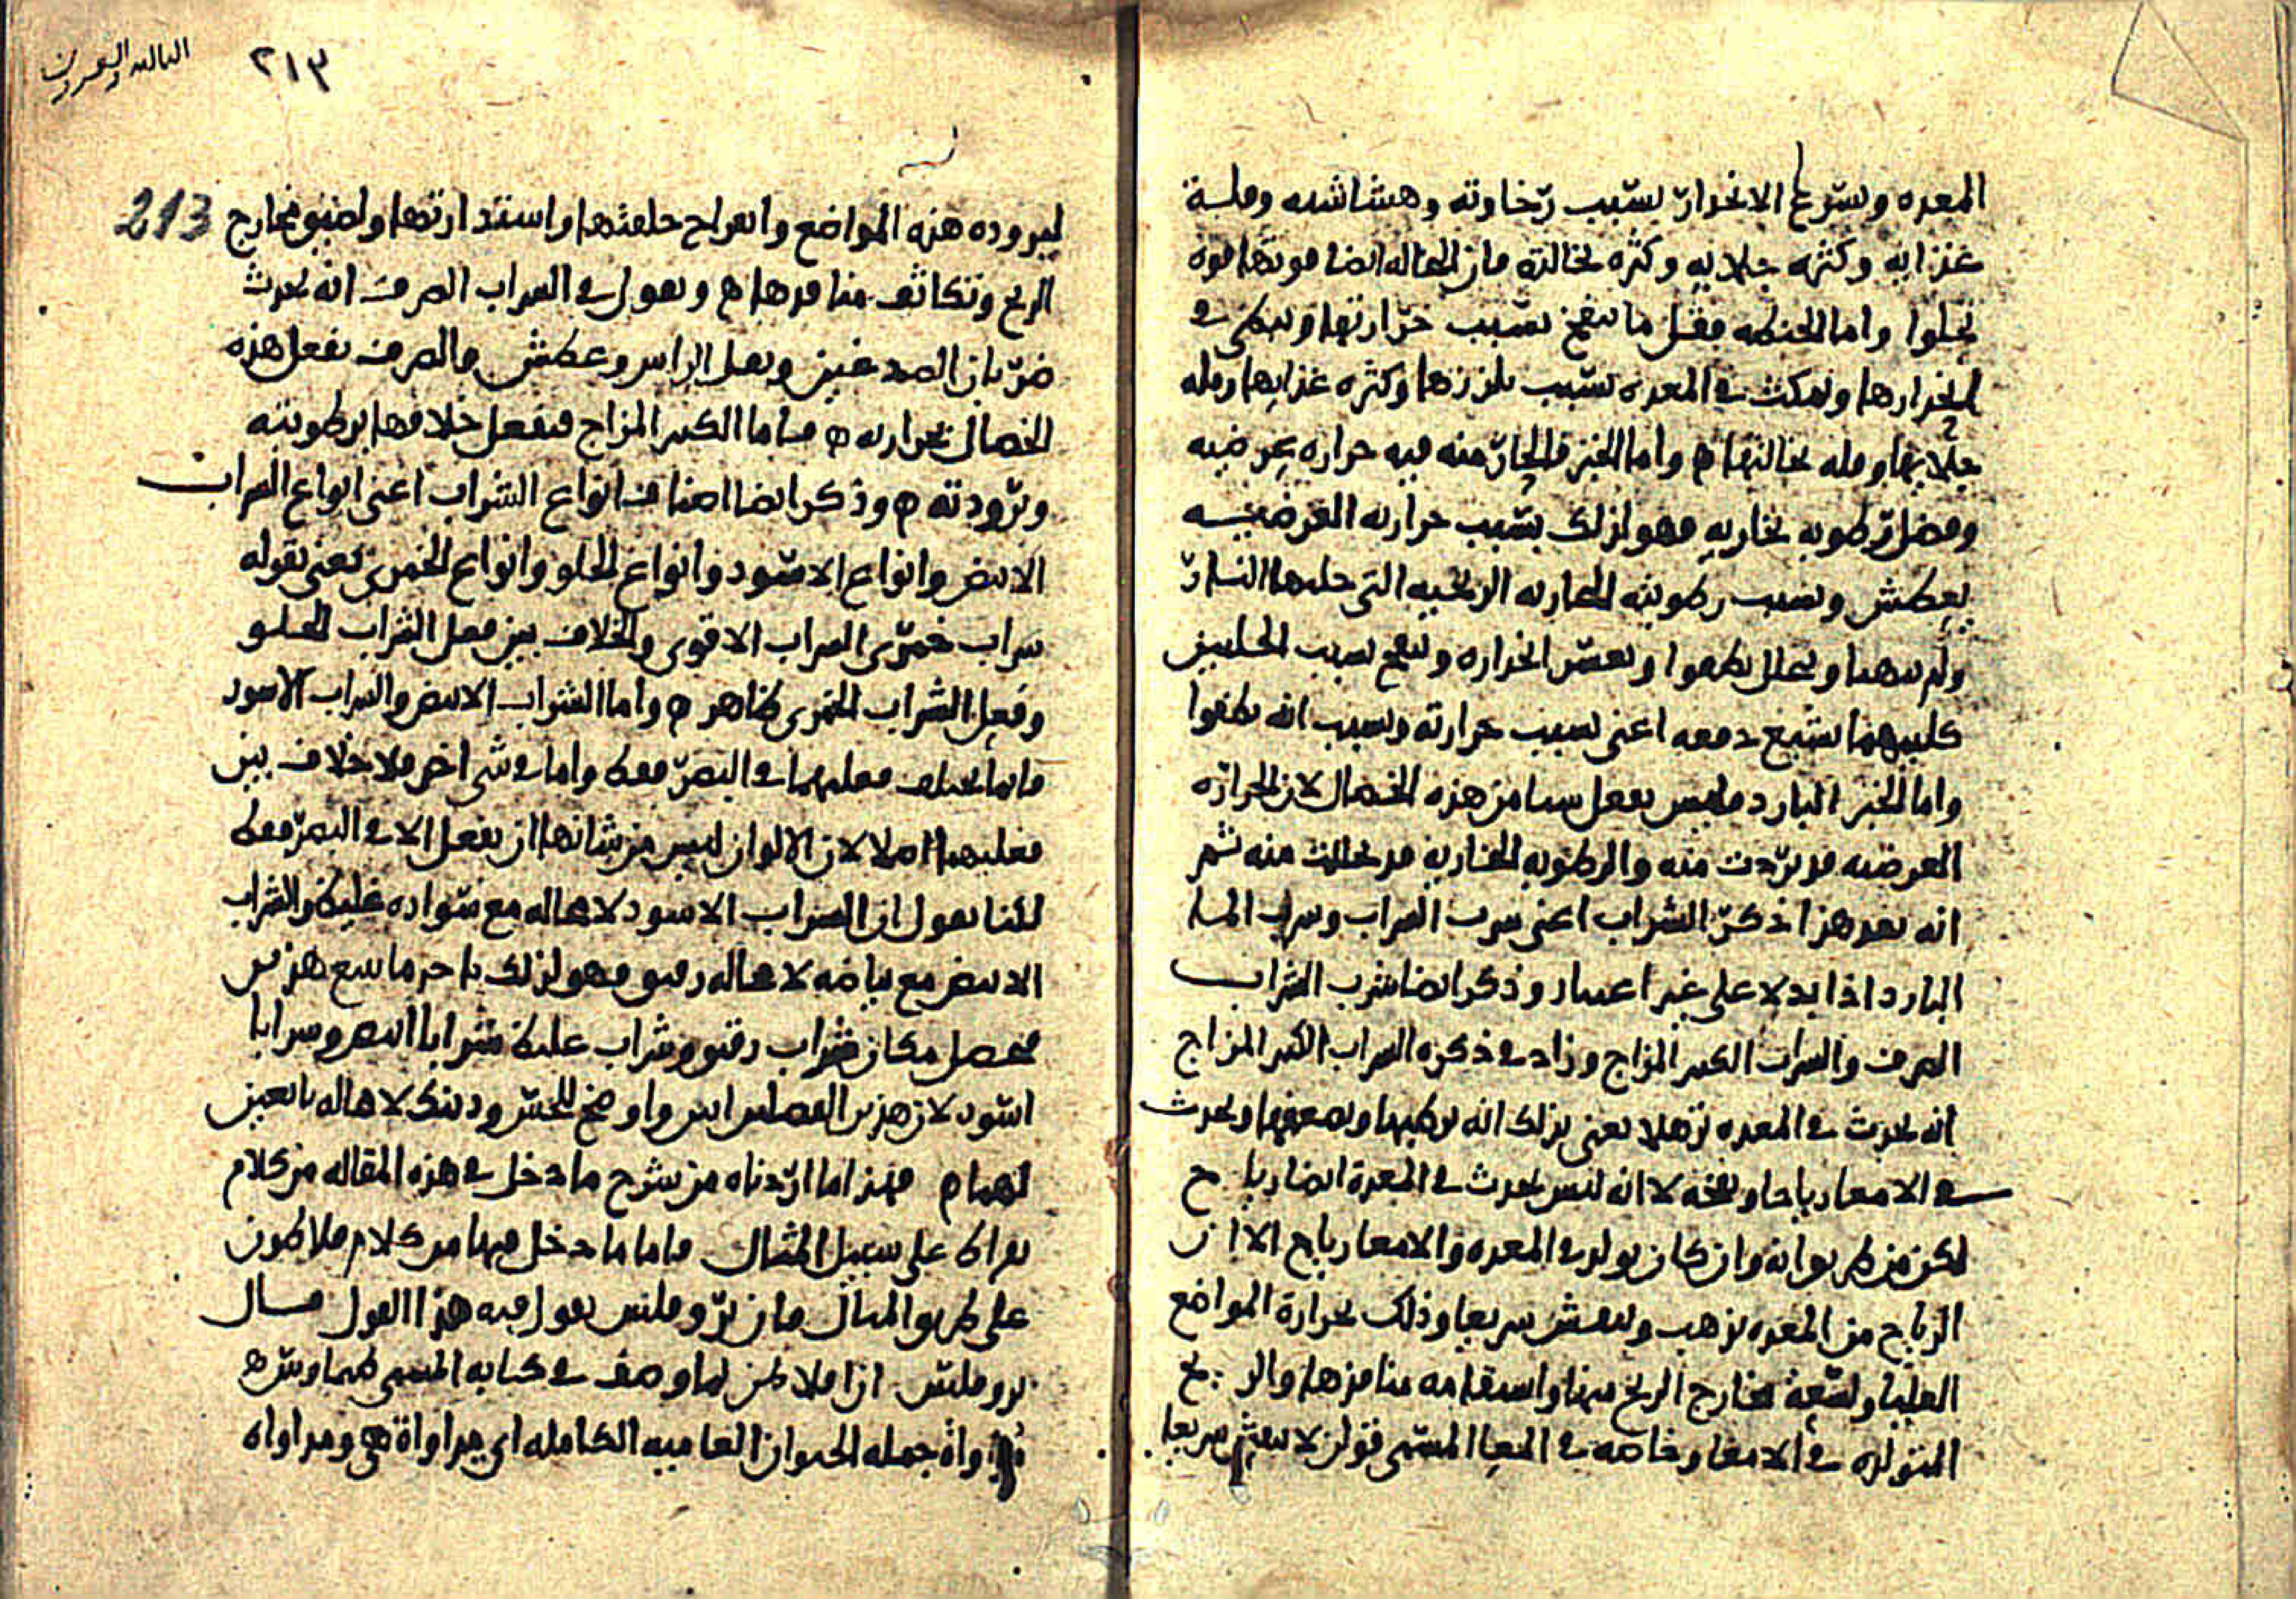 المعده وبسرع الانحدار بسبب رخاوته وهشاشته وقلة
غذائه وكثره جلائه وكثره نخالته فان النخاله ايضا قوتها قوه
تجلوا واما الحنطه فقل ما تنفخ بسبب حرارتها وتبطئ في
انحدارها وتمكث في المعده بسبب تلززها وكثره غذائها وقله
جلائها وقله نخالتها ه واما الخبز فالحار منه فيه حراره عرضيه
وفضل رطوبه بخاريه فهو لذلك بسبب حرارته العرضيه
يعطش وبسبب رطوبته البخاريه الريحيه التي حللها النار
ولم تنهها وتحلل يطفوا ويعسر انحداره وينفخ بسبب الخلتين
كليهما يشبع دفعه اعني بسبب حرارته وبسبب انه يطفوا
واما الخبز البارد فليس يفعل شيا من هذه الخصال لان الحراره
العرضيه قد بردت منه والرطوبه البخاريه قد تحللت منه ثم
انه بعد هذا ذكر الشراب اعني شرب الشراب وشراب الما
البارد اذا بدلا على غير اعتياد وذكر ايضا شرب الشراب
الصرف والشراب الكثير المزاج وزاد في ذكره الشراب الكثير المزاج
انه يحدث في المعده ترهلا يعني بذلك انه يرطبها ويضعفها ويحدث
في الامعا رياحا ونفخه لا انه ليس يحدث في المعدة ايضا رياح
لكن من طريق انه وان كان يولد في المعده والامعا رياح الا ان
الرياح من المعده تذهب وتنفش سريعا وذلك لحرارة المواضع
العليا ولسعة مخارج الريح منها واستقامه منافذها والريح
المتولده في الامعا وخاصه في المعا المسمى قولن لا تنفش سريعا
الثالثه والعشرون
٢١٣
213
لبروده هذه المواضع وانعراج خلقتها واستدارتها ولضيق مخارج
الريح وتكاثف منافذها ه ويقول في الشراب الصرف انه يحدث
ضربان الصدغين وثقل الراس وعطش والصرف يفعل هذه
الخصال بحرارته ه فاما الكثير المزاج فيفعل خلافها برطوبته
وبرودته ه وذكر ايضا اصناف انواع الشراب اعني انواع الشراب
الابيض وانواع الاسود وانواع الحلو وانواع الخمري يعني بقوله
شراب خمري الشراب الاقوى والخلاف بين فعل الشراب الحلو
وفعل الشراب الخمري ظاهر ه واما الشراب الابيض والشراب الاسود
فانما يختلف فعلهما في البصر فقط واما في شي اخر فلا خلاف بين
فعليهما اصلا لان الالوان ليس من شانها ان تفعل الا في البصر فقط
لكنا نقول ان الشراب الاسود لا محاله مع سواده غليظ والشراب
الابيض مع بياضه لا محاله رقيق فهو لذلك ياخذ ما يتبع هذين
فحصل مكان شراب رقيق وشراب غليظ شرابا ابيض وشرابا
اسود لان هذين الفصلين ابين واوضح للحس ودينك لا محاله تابعين
لهما ه فهذا ما اردناه من شرح ما دخل في هذه المقاله من كلام
بقراط على سبيل المثال فاما ما دخل فيها من كلام فلاطون
على طريق المثال فان بروقلس يقول فيه هذا القول قال
بروقلس ان افلاطن لما وصف في كتابه المسمى طيماوس
مداواة جمله الحيوان العاميه الكامله اي مداواة هي ومداواه